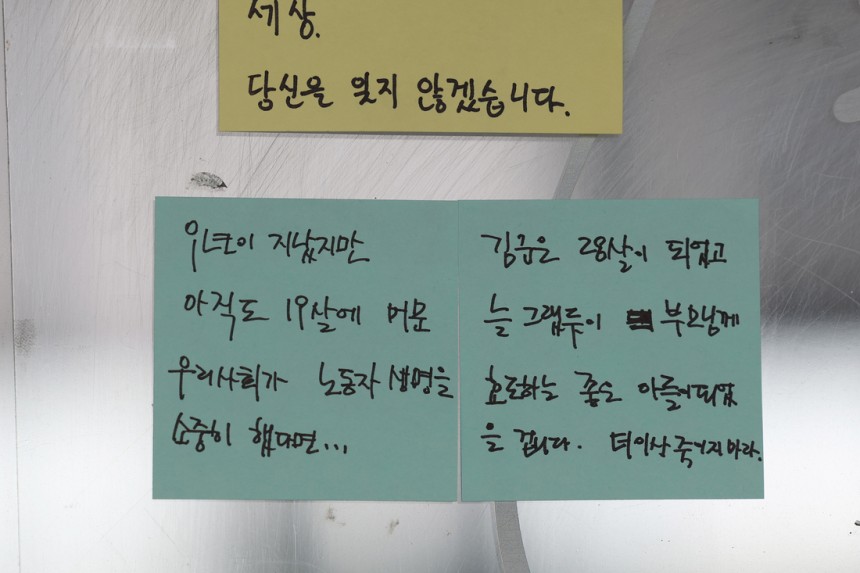 세상.
당신을 잊지 않겠습니다.
9년이 지났지만
아직도 19살에 머문
우리사회가 노동자 생명을
소중히 했다면...
김군은 28살이 되었고
늘 그랬듯이 부모님께
효도하는 좋은 아들이되었
을 겁니다. 더이상 죽이지마라.